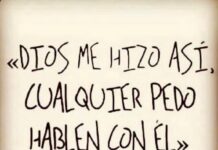 «DIOS ME HIZO ASÍ,
CUALQUIER PEDO
HABLEN CON ÉL.»